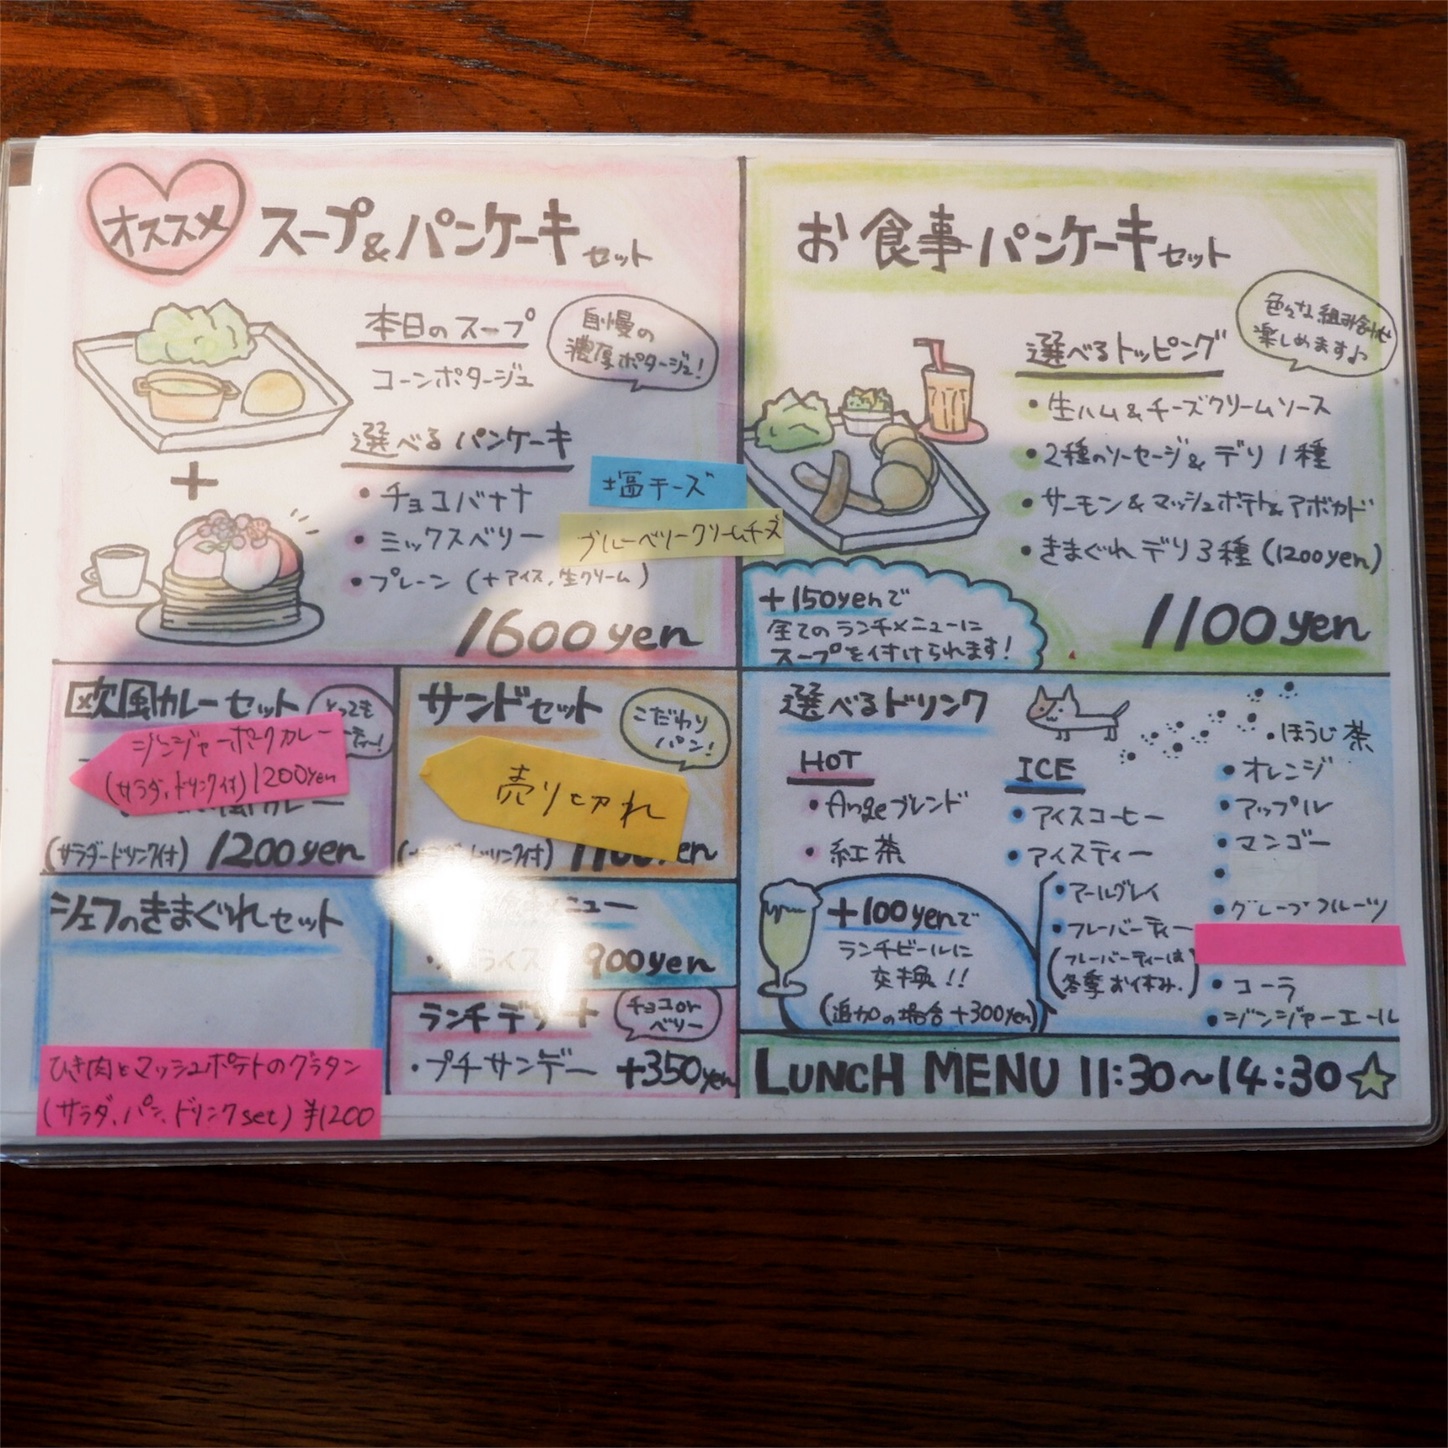 オススメ
スープ&パンケーキセット
本日のスープ
コーンポタージュ
自慢の
濃厚ポタージュ!
選べるパンケーキ
・チョコバナナ
・ミックスベリー
・プレーン(+アイス、生クリーム)
塩チーズ
ブルーベリークリームチーズ
+
1600yen
お食事パンケーキセット
色々な組み合わせ
楽しめます♪
選べるトッピング
・生ハム&チーズクリームソース
・2種のソーセージ&デリ1種
・サーモン&マッシュポテト&アボカド
・きまぐれデリ3種(1200yen)
+150yenで
全てのランチメニューに
スープを付けられます!
1100yen
欧風カレーセット
とっても
ジンジャーポークカレー
(サラダ、ドリンク付)1200yen
風カレー
(サラダ・ドリンク付)1200yen
サンドセット
こだわり
パン!
売り切れ
ドリンク付)1100yen
シェフのきまぐれセット
ひき肉とマッシュポテトのグラタン
(サラダ、パン、ドリンクset)¥1200
メニュー
ライス 900yen
ランチデザート
チョコor
ベリー
・プチサンデー +350yen
選べるドリンク
HOT
・Angeブレンド
・紅茶
ICE
・アイスコーヒー
・アイスティー
・アールグレイ
・フレーバーティー
(フレーバーティーは
冬季お休み.)
・ほうじ茶
・オレンジ
・アップル
・マンゴー
・グレープフルーツ
・コーラ
・ジンジャーエール
+100yenで
ランチビールに
交換!!
(追加の場合+300yen)
LUNCH MENU 11:30~14:30☆